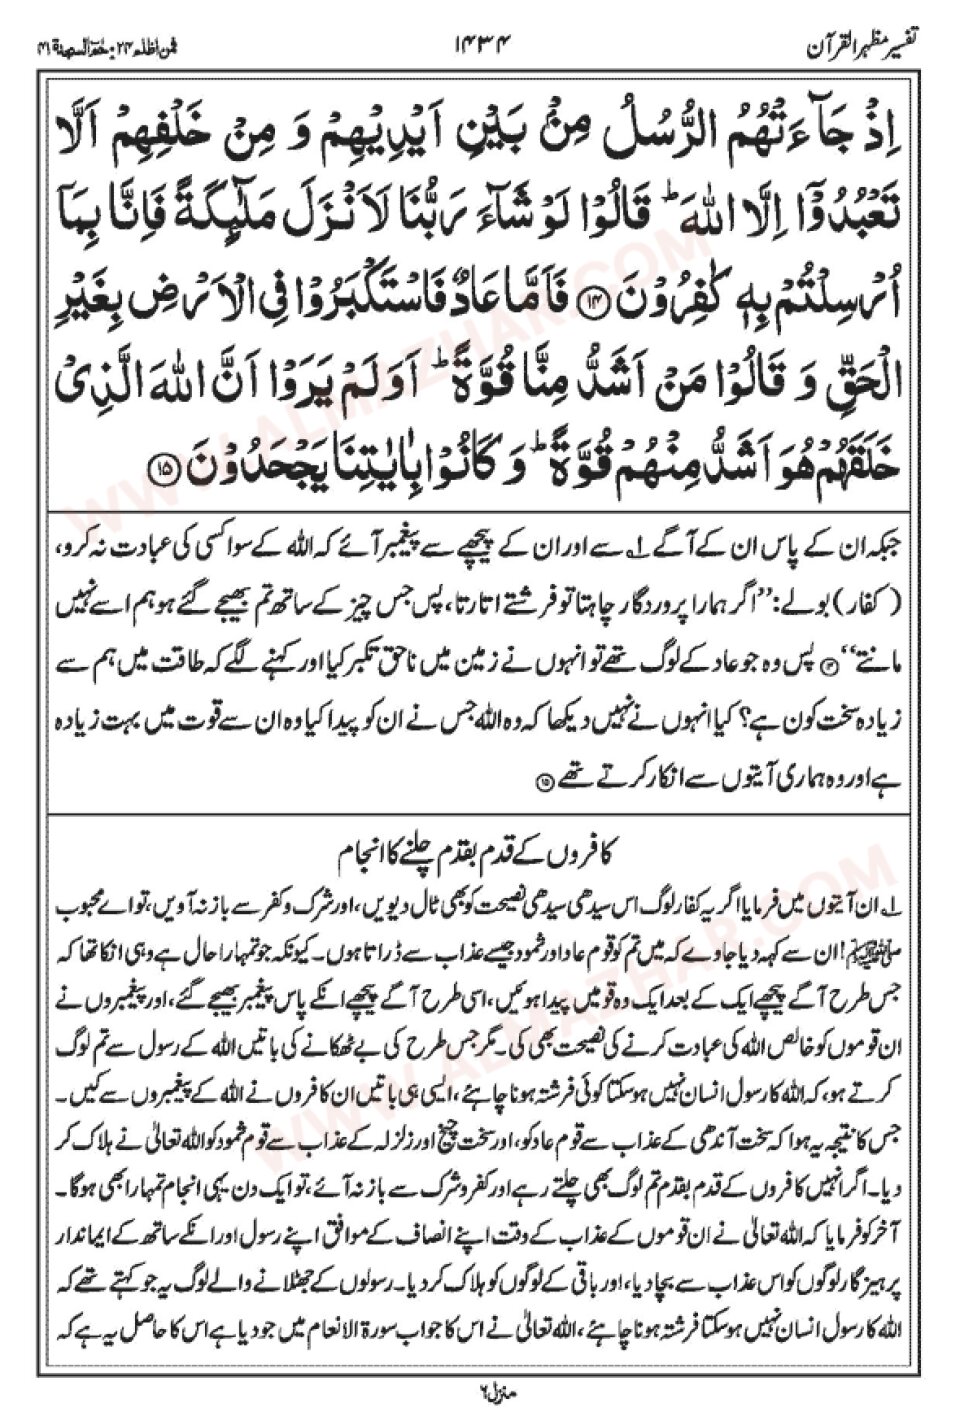 تفسیر مظہر القرآن
۱۴۳۴
فمن اظلم ۲۴: حٰمٓ السجدة ۴۱
اِذْ جَآءَتْهُمُ الرُّسُلُ مِنْۢ بَيْنِ اَيْدِيْهِمْ وَ مِنْ خَلْفِهِمْ اَلَّا
تَعْبُدُوْۤا اِلَّا اللّٰهَ ؕ قَالُوْا لَوْ شَآءَ رَبُّنَا لَاَنْزَلَ مَلٰٓىِٕكَةً فَاِنَّا بِمَاۤ
اُرْسِلْتُمْ بِهٖ كٰفِرُوْنَ ۝۱۴ فَاَمَّا عَادٌ فَاسْتَكْبَرُوْا فِي الْاَرْضِ بِغَيْرِ
الْحَقِّ وَ قَالُوْا مَنْ اَشَدُّ مِنَّا قُوَّةً ؕ اَوَلَمْ يَرَوْا اَنَّ اللّٰهَ الَّذِيْ
خَلَقَهُمْ هُوَ اَشَدُّ مِنْهُمْ قُوَّةً ؕ وَ كَانُوْا بِاٰيٰتِنَا يَجْحَدُوْنَ ۝۱۵
جبکہ ان کے پاس ان کے آگے ۱؎ سے اور ان کے پیچھے سے پیغمبر آئے کہ اللہ کے سوا کسی کی عبادت نہ کرو،
(کفار) بولے: ’’اگر ہمارا پروردگار چاہتا تو فرشتے اتارتا، پس جس چیز کے ساتھ تم بھیجے گئے ہو ہم اسے نہیں
مانتے‘‘ ۝۱۴ پس وہ جو عاد کے لوگ تھے تو انہوں نے زمین میں ناحق تکبر کیا اور کہنے لگے کہ طاقت میں ہم سے
زیادہ سخت کون ہے؟ کیا انہوں نے نہیں دیکھا کہ وہ اللہ جس نے ان کو پیدا کیا وہ ان سے قوت میں بہت زیادہ
ہے اور وہ ہماری آیتوں سے انکار کرتے تھے ۝۱۵
کافروں کے قدم بقدم چلنے کا انجام
۱؎ ان آیتوں میں فرمایا اگر یہ کفار لوگ اس سیدھی سیدھی نصیحت کو بھی ٹال دیویں، اور شرک و کفر سے باز نہ آویں، تو اے محبوب
ﷺ! ان سے کہہ دیا جاوے کہ میں تم کو قوم عاد اور ثمود جیسے عذاب سے ڈراتا ہوں۔ کیونکہ جو تمہارا حال ہے وہی انکا تھا کہ
جس طرح آگے پیچھے ایک کے بعد ایک وہ قومیں پیدا ہوئیں، اسی طرح آگے پیچھے انکے پاس پیغمبر بھیجے گئے، اور پیغمبروں نے
ان قوموں کو خالص اللہ کی عبادت کرنے کی نصیحت بھی کی۔ مگر جس طرح کی بے ٹھکانے کی باتیں اللہ کے رسول سے تم لوگ
کرتے ہو، کہ اللہ کا رسول انسان نہیں ہو سکتا کوئی فرشتہ ہونا چاہئے، ایسی ہی باتیں ان کافروں نے اللہ کے پیغمبروں سے کیں۔
جس کا نتیجہ یہ ہوا کہ سخت آندھی کے عذاب سے قوم عاد کو، اور سخت چیخ اور زلزلہ کے عذاب سے قوم ثمود کو اللہ تعالیٰ نے ہلاک کر
دیا۔ اگر انہیں کافروں کے قدم بقدم تم لوگ بھی چلتے رہے اور کفر و شرک سے باز نہ آئے، تو ایک دن یہی انجام تمہارا بھی ہوگا۔
آخر کو فرمایا کہ اللہ تعالیٰ نے ان قوموں کے عذاب کے وقت اپنے انصاف کے موافق اپنے رسول اور انکے ساتھ کے ایماندار
پرہیزگار لوگوں کو اس عذاب سے بچا دیا، اور باقی کے لوگوں کو ہلاک کر دیا۔ رسولوں کے جھٹلانے والے لوگ یہ جو کہتے تھے کہ
اللہ کا رسول انسان نہیں ہو سکتا فرشتہ ہونا چاہئے، اللہ تعالیٰ نے اس کا جواب سورۃ الانعام میں جو دیا ہے اس کا حاصل یہ ہے کہ
منزل ۶
WWW.ALMAZHAR.COM
WWW.ALMAZHAR.COM